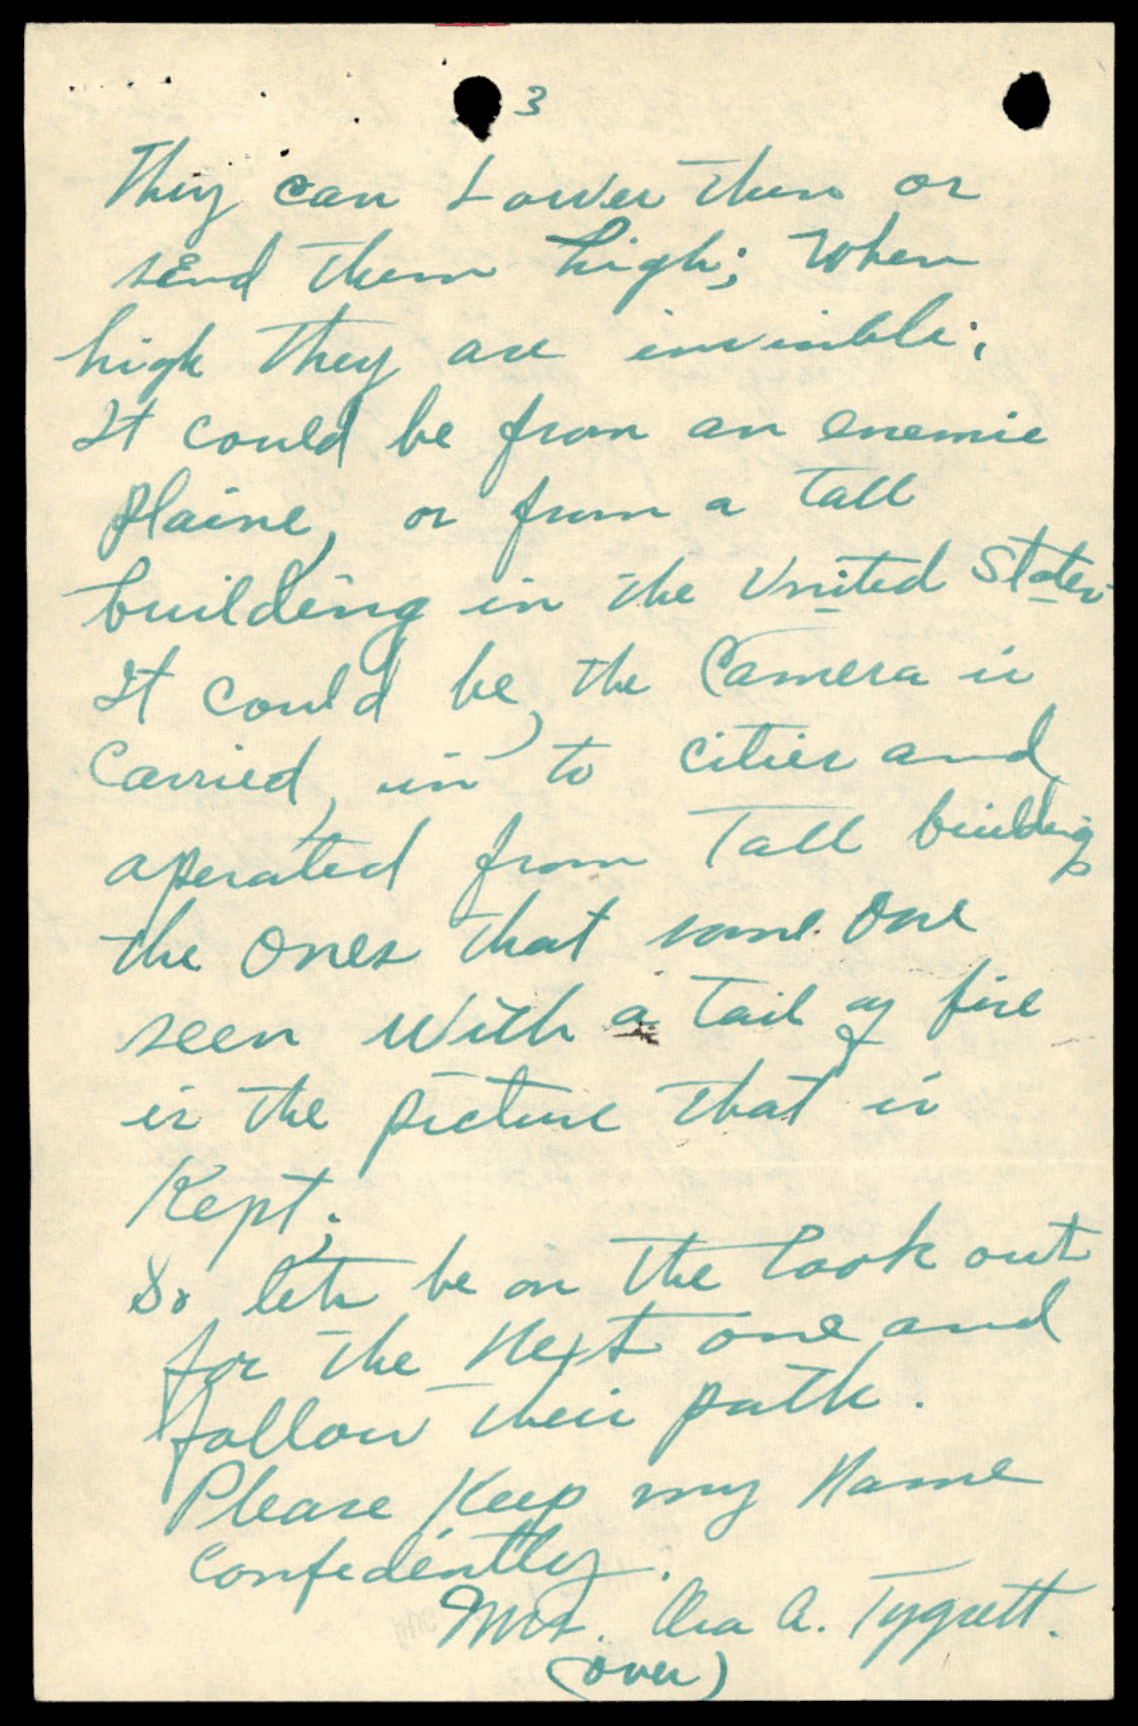 3
They can Lower them or
send them high; When
high they are invisible;
It could be from an enemie
plaine, or from a tall
building in the United States
It could be, the Camera is
Carried, in to cities and
operated from Tall buildings
the ones that some one
seen with a tail of fire
is the picture that is
Kept;
So lets be on the look out
for the next one and
follow their path.
Please Keep my Name
confedently.
Mrs. A. Tygrett.
(over)